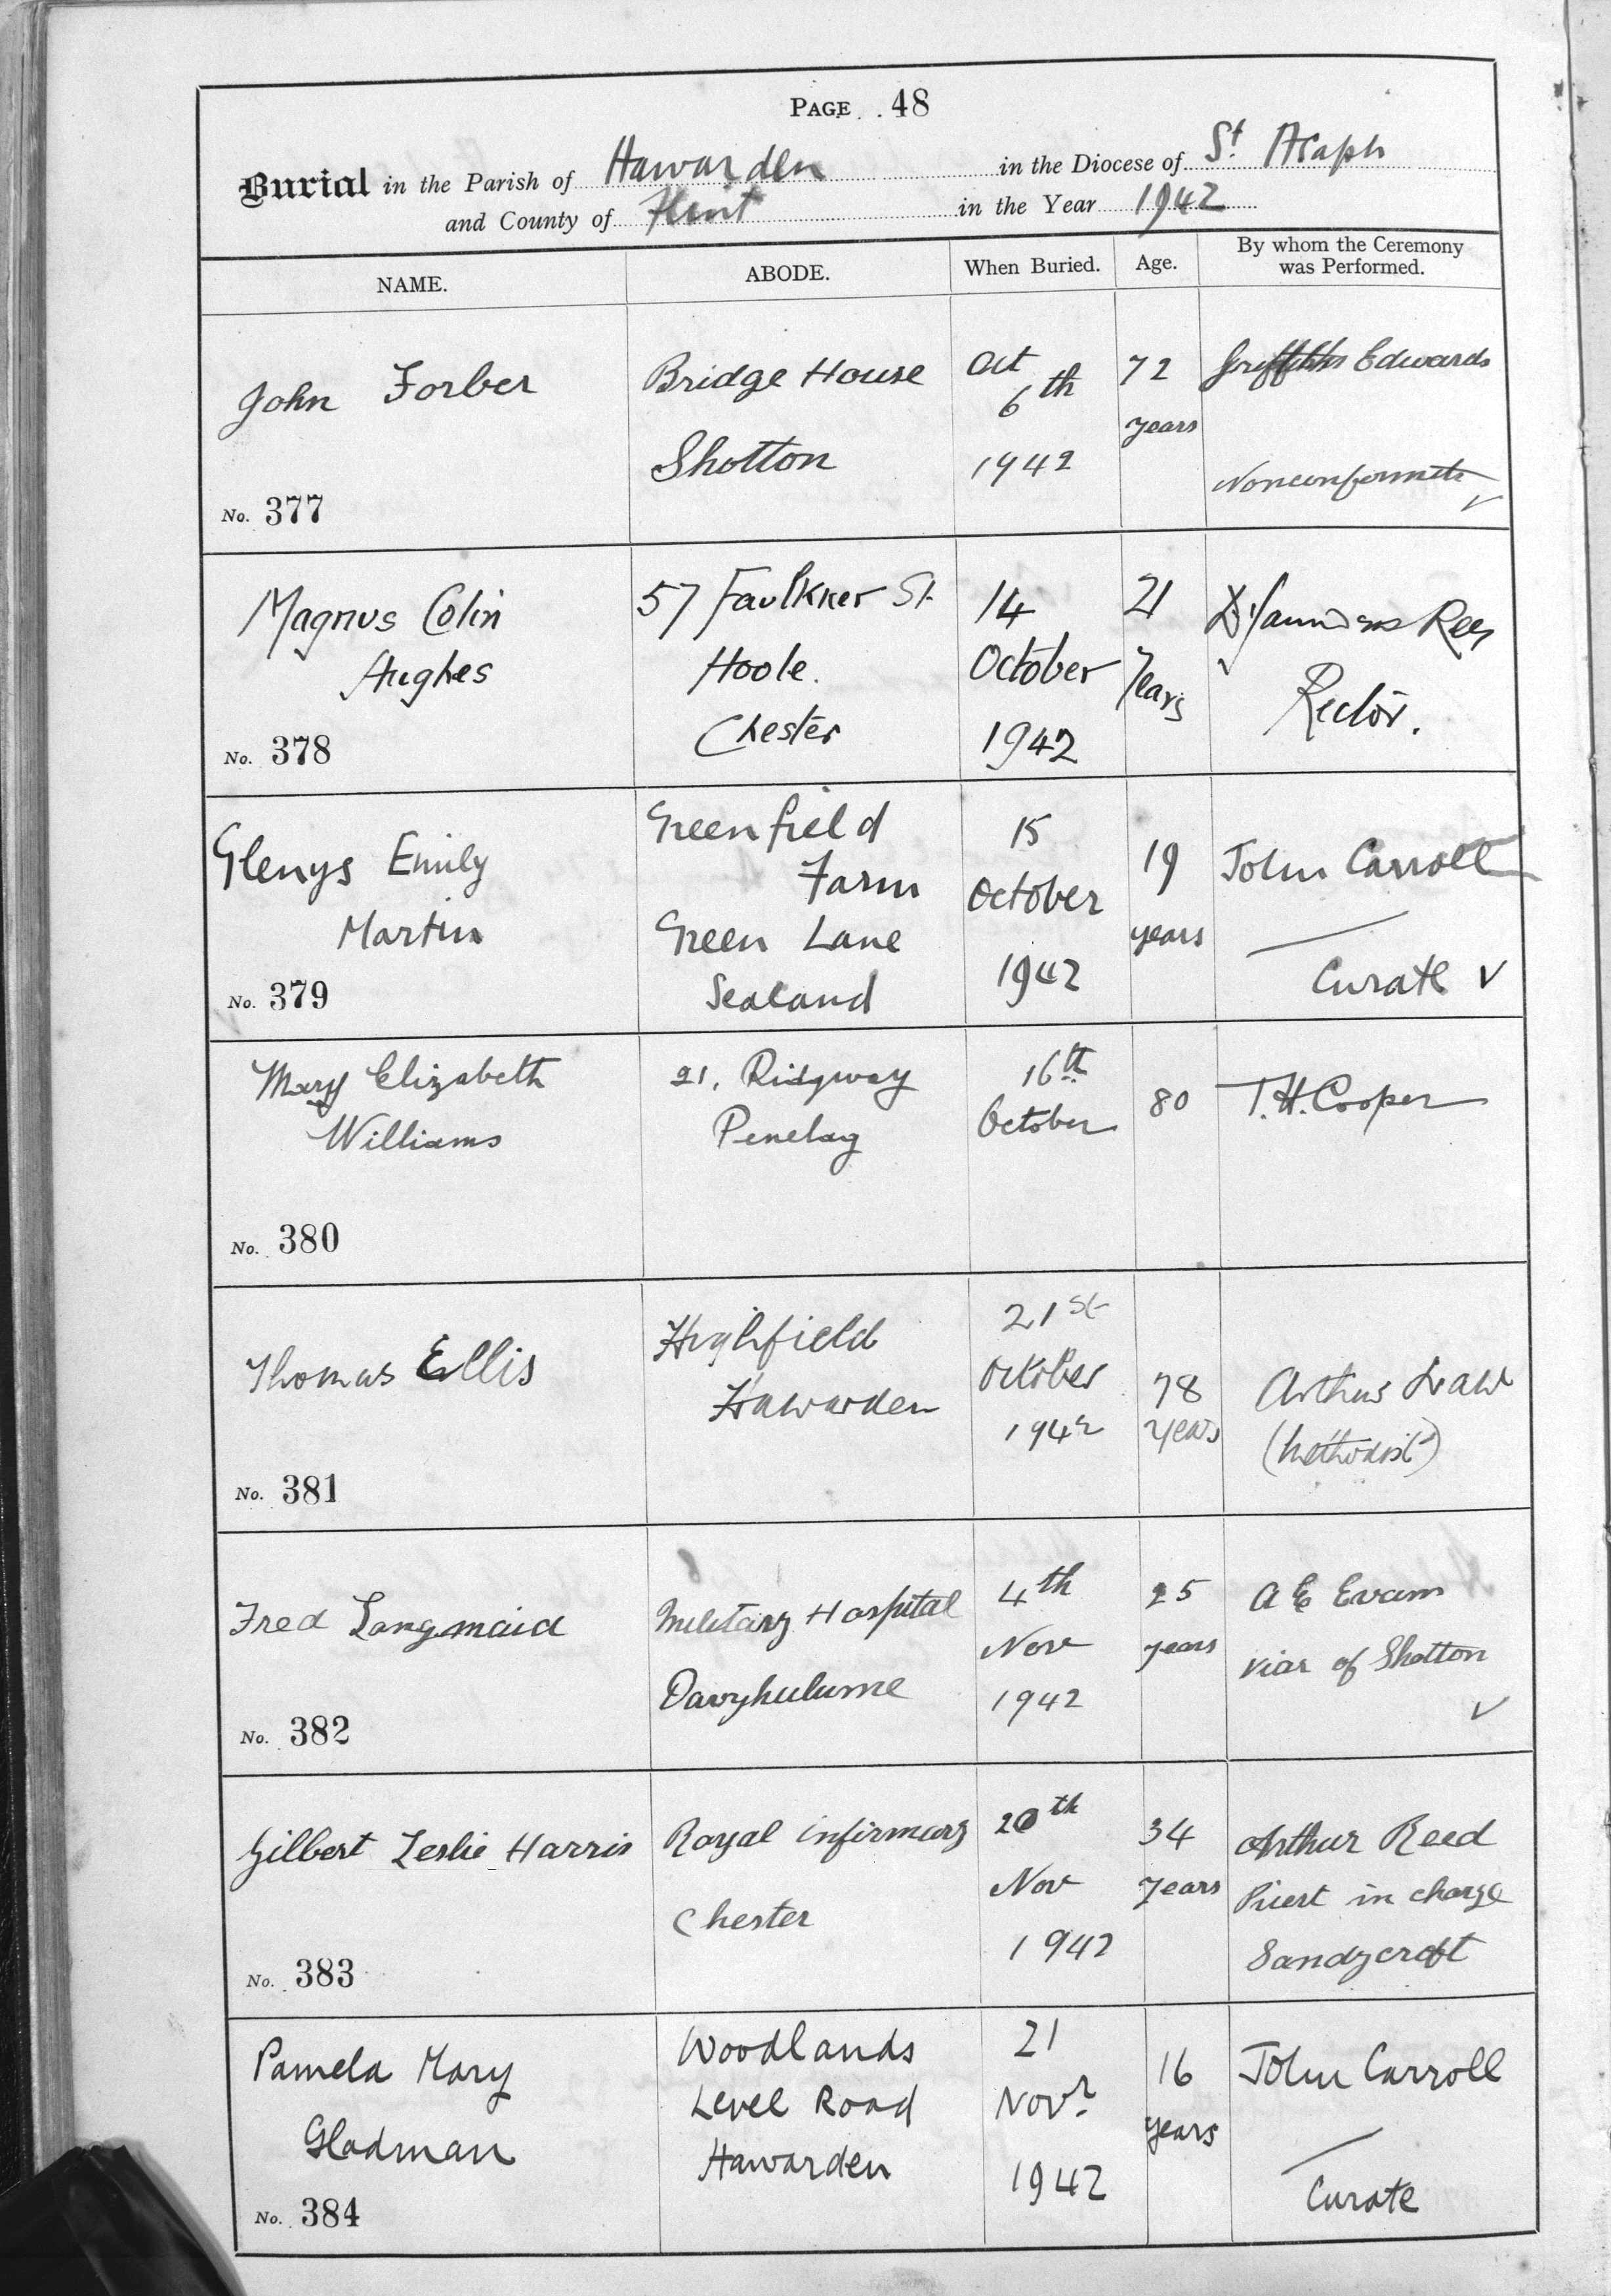 PAGE 48
Burial in the Parish of Hawarden in the Diocese of St. Asaph
and County of Flint in the Year 1942
NAME. ABODE. When Buried. Age. By whom the Ceremony was Performed.
John Forber
Bridge House
Shotton
Oct
6th
1942
72
years
Griffiths Edwards
Nonconformist
No. 377
Magnus Colin
Hughes
57 Faulkner St.
Hoole.
Chester
14
October
1942
21
Years
Saunders Rees
Rector.
No. 378
Glenys Emily
Martin
Greenfield
Farm
Green Lane
Sealand
15
October
1942
19
years
John Carroll
Curate
No. 379
Mary Elizabeth
Williams
21, Ridgway
Penelay
16th
October
80
T. H. Cooper
No. 380
Thomas Ellis
Highfield
Hawarden
21st
October
1942
78
years
Arthur Law
(Methodist)
No. 381
Fred Langmaid
Military Hospital
Davyhulume
4th
Nov
1942
25
years
A E Evans
Viar of Shotton
No. 382
Gilbert Leslie Harris
Royal infirmary
Chester
20th
Nov
1942
34
years
Arthur Reed
Priest in charge
Sandycroft
No. 383
Pamela Mary
Gladman
Woodlands
Level Road
Hawarden
21
Novr.
1942
16
years
John Carroll
Curate
No. 384